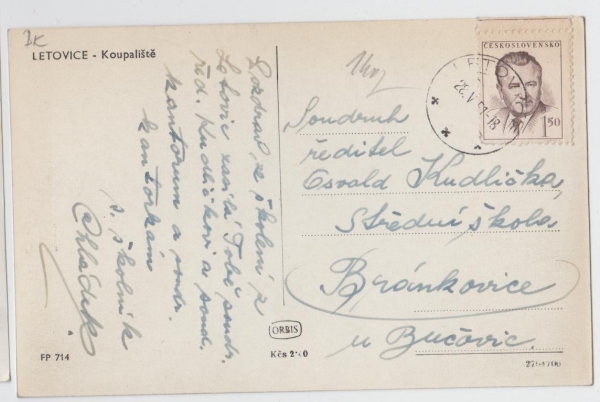 2K
LETOVICE - Koupaliště
Pozdrav ze školení z
Letovic zasílá Tobě soudr.
řed. Kudličkovi a soud.
kantorům a soudr.
kantorkám
s. školník
ČESKOSLOVENSKO
1.50
LETOVICE
Soudruh
ředitel
Osvald Kudlička,
Střední škola
Bránkovice
u Bučovic.
ORBIS
FP 714